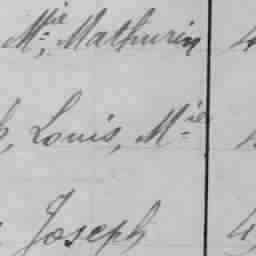 Mie, Mathurin 4
h, Louis, Mie
Joseph 4